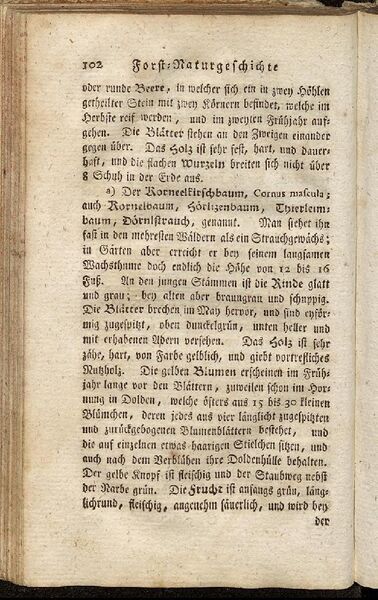 102 Forst-Naturgeschichte
oder runde Beere, in welcher sich ein in zwey Höhlen
getheilter Stein mit zwey Körnern befindet, welche im
Herbste reif werden, und im zweyten Frühjahr auf-
gehen. Die Blätter stehen an den Zweigen einander
gegen über. Das Holz ist sehr fest, hart, und dauer-
haft, und die flachen Wurzeln breiten sich nicht über
8 Schuh in der Erde aus.
a) Der Korneelkirschbaum, Cornus mascula;
auch Kornelbaum, Hörlizenbaum, Thierlein-
baum, Dörnlstrauch, genannt. Man siehet ihn
fast in den mehresten Wäldern als ein Strauchgewächs;
in Gärten aber erreicht er bey seinem langsamen
Wachsthume doch endlich die Höhe von 12 bis 16
Fuß. An den jungen Stämmen ist die Rinde glatt
und grau; bey alten aber braungrau und schuppig.
Die Blätter brechen im May hervor, und sind eyför-
mig zugespitzt, oben dunckelgrün, unten heller und
mit erhabenen Adern versehen. Das Holz ist sehr
zähe, hart, von Farbe gelblich, und giebt vortrefliches
Nutzholz. Die gelben Blumen erscheinen im Früh-
jahr lange vor den Blättern, zuweilen schon im Hor-
nung in Dolden, welche öfters aus 15 bis 30 kleinen
Blümchen, deren jedes aus vier länglicht zugespitzten
und zurückgebogenen Blumenblättern bestehet, und
die auf einzelnen etwas haarigen Stielchen sitzen, und
auch nach dem Verblühen ihre Doldenhülle behalten.
Der gelbe Knopf ist fleischig und der Staubweg nebst
der Narbe grün. Die Frucht ist anfangs grün, läng-
lichrund, fleischig, angenehm säuerlich, und wird bey
der